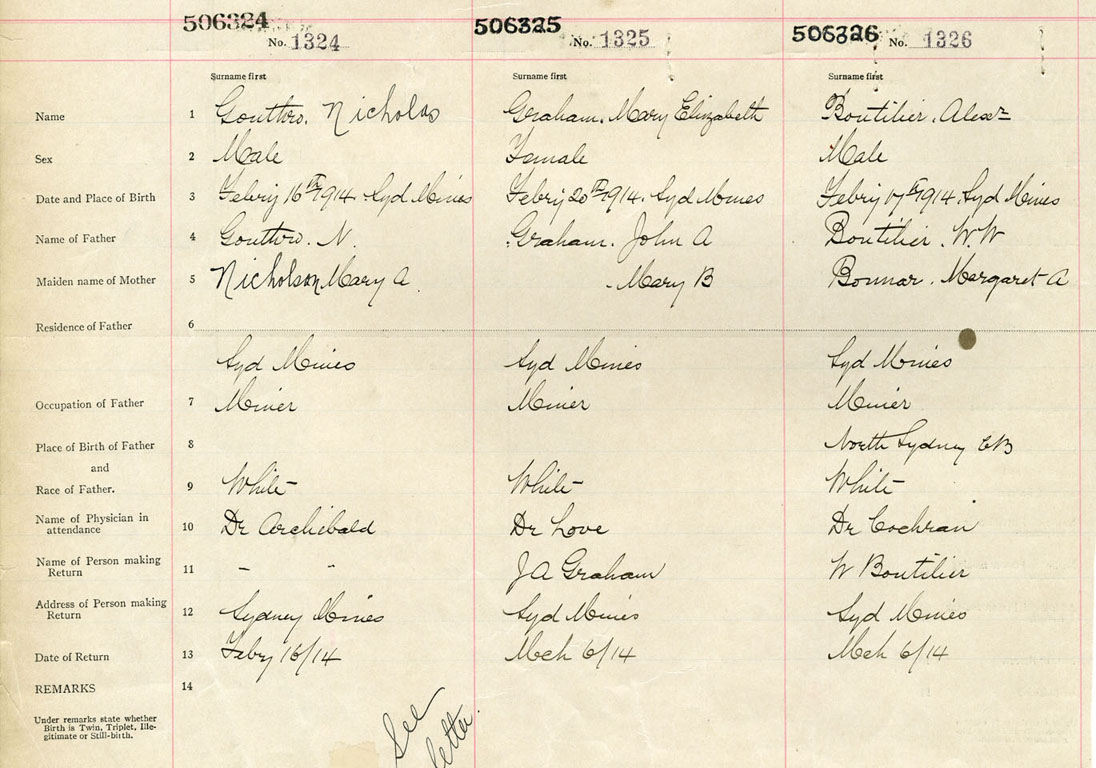 506324 506325 506326
No. 1324 No. 1325 No. 1326
Surname first Surname first Surname first
Name 1 Gouthro. Nicholas Graham. Mary Elizabeth Boutilier. Alexr
Sex 2 Male Female Male
Date and Place of Birth 3 Febry 16th 1914 Syd Mines Febry 20th 1914. Syd Mines Febry 17th 1914. Syd Mines
Name of Father 4 Gouthro. N. Graham. John A Boutilier. W. W
Maiden name of Mother 5 Nicholson Mary A. - Mary B Bonnar. Margaret A
Residence of Father 6
Syd Mines Syd Mines Syd Mines
Occupation of Father 7 Miner Miner Miner
Place of Birth of Father 8 North Sydney CB
and
Race of Father. 9 White White White
Name of Physician in
attendance 10 Dr Archibald Dr Love Dr Cochran
Name of Person making
Return 11 - " J A Graham W Boutilier
Address of Person making
Return 12 Sydney Mines Syd Mines Syd Mines
Date of Return 13 Febry 16/14 Mch 6/14 Mch 6/14
REMARKS 14
Under remarks state whether
Birth is Twin, Triplet, Ille-
gitimate or Still-birth.
See
letter.